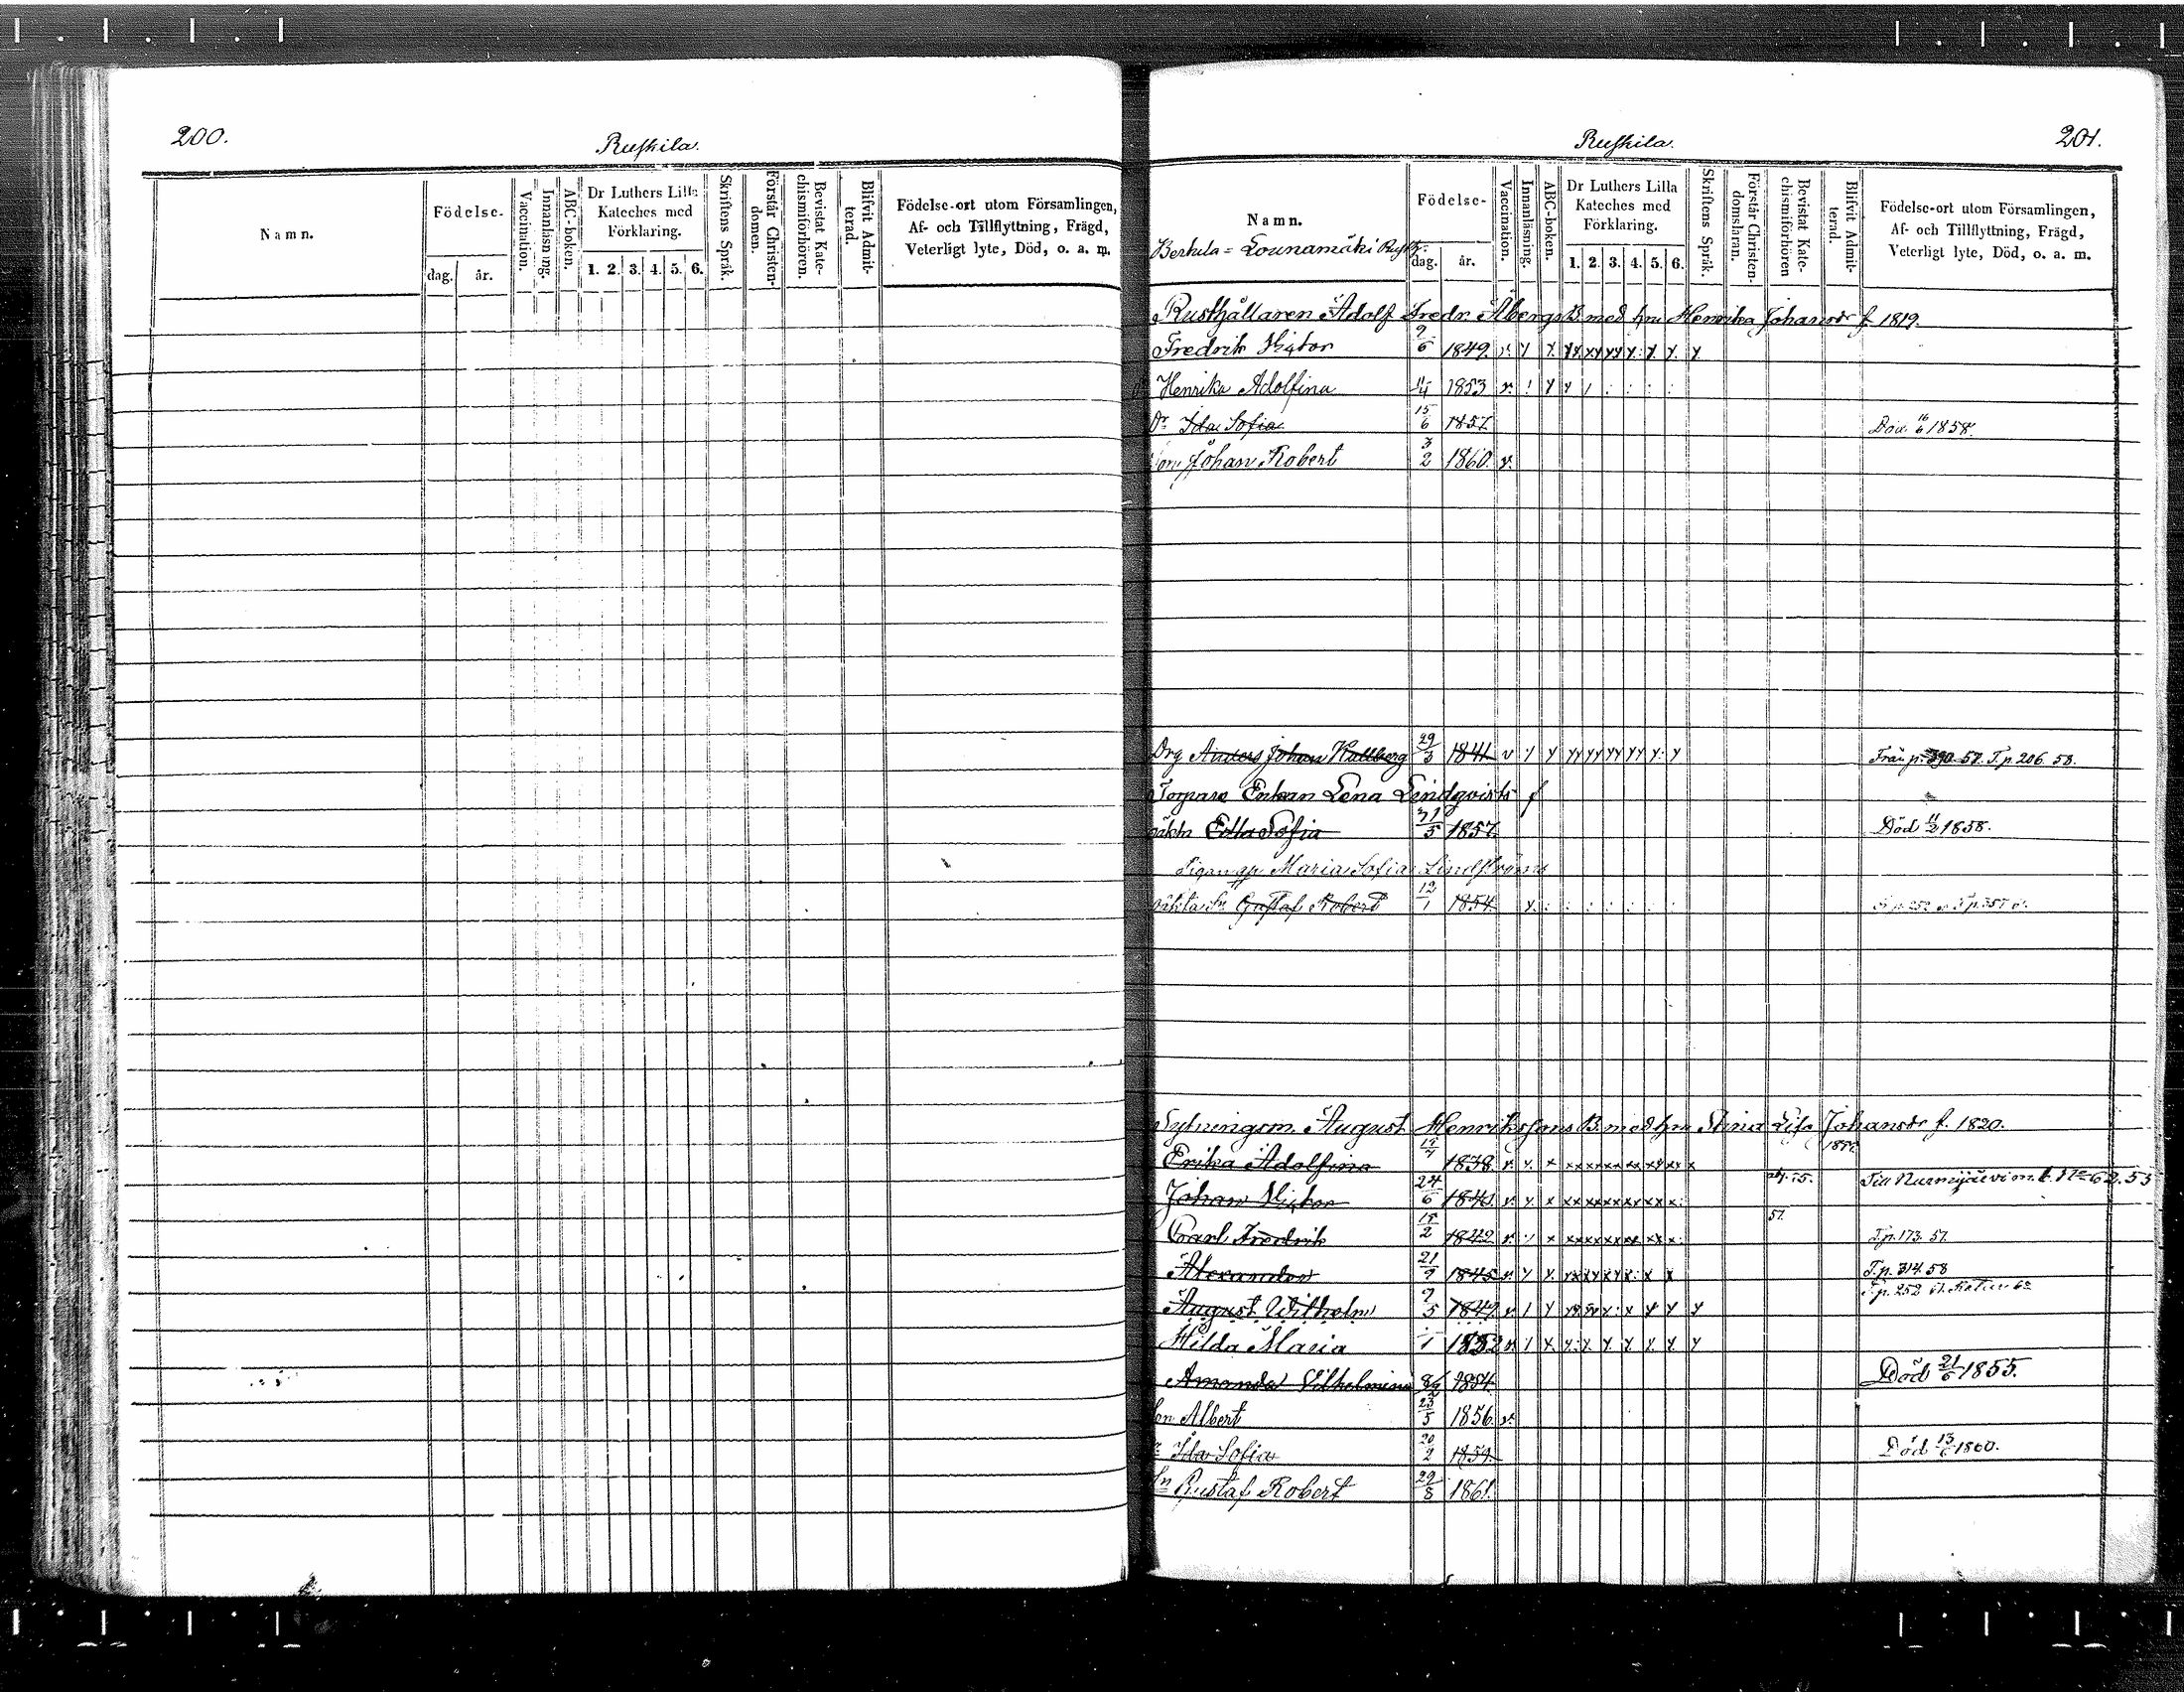 200.
Ruskila.
Namn.
Födelse-
dag. år.
Vaccination.
Innanläsning.
ABC-boken.
Dr Luthers Lilla
Kateches med
Förklaring.
1. 2. 3. 4. 5. 6.
Skriftens Språk.
Förstår Christen-
domen.
Bevistat Kate-
chismiförhören.
Blifvit Admit-
terad.
Födelse-ort utom Församlingen,
Af- och Tillflyttning, Frägd,
Veterligt lyte, Död, o. a. m.
Ruskila.
201.
Namn.
Lounamäki
Födelse-
dag. år.
Vaccination.
Innanläsning.
ABC-boken.
Dr Luthers Lilla
Kateches med
Förklaring.
1. 2. 3. 4. 5. 6.
Skriftens Språk.
Förstår Christen-
domsläran.
Bevistat Kate-
chismiförhören
Blifvit Admit-
terad.
Födelse-ort utom Församlingen,
Af- och Tillflyttning, Frägd,
Veterligt lyte, Död, o. a. m.
Rusthållaren Adolf Fredr Åbergs B. med hu Henrika Johansdr f. 1819.
Fredrik Viktor 9/6 1849.
Henrika Adolfina 11/4 1853
Dr Ida Sofia 15/6 1857. Död 16/6 1858.
Johan Robert 3/2 1860.
Drg Anders Johan Kallberg 29/3 1841 Från p. 390 57. T. p. 206. 58.
Torpare Enkan Lena Lindqvists f
oäkta Edla Sofia 31/5 1857. Död 11/2 1858.
Pigan Maria Sofia Lindströms
oäkta Sn Gustaf Robert 12/1 1854. T. p. 357
Sytningsm. August Henrikssons B. med hu Stina Lisa Johansdr f. 1820.
Erika Adolfina 1838
Johan Viktor 24/6 1840. Till Nurmijärvi m. b. No 62. 55
Carl Fredrik 15/2 1842 57. T. p. 173. 57
Alexander 21/9 1845 T. p. 314. 58
August Wilhelm 9/5 1849 T. p. 252
Hilda Maria 1 1852
Amanda Vilhelmina 8/2 1854 Död 21/6 1855.
Son Albert 23/5 1856
Ida Sofia 20/2 1859. Död 13/6 1860.
Sn Gustaf Robert 29/8 1861.